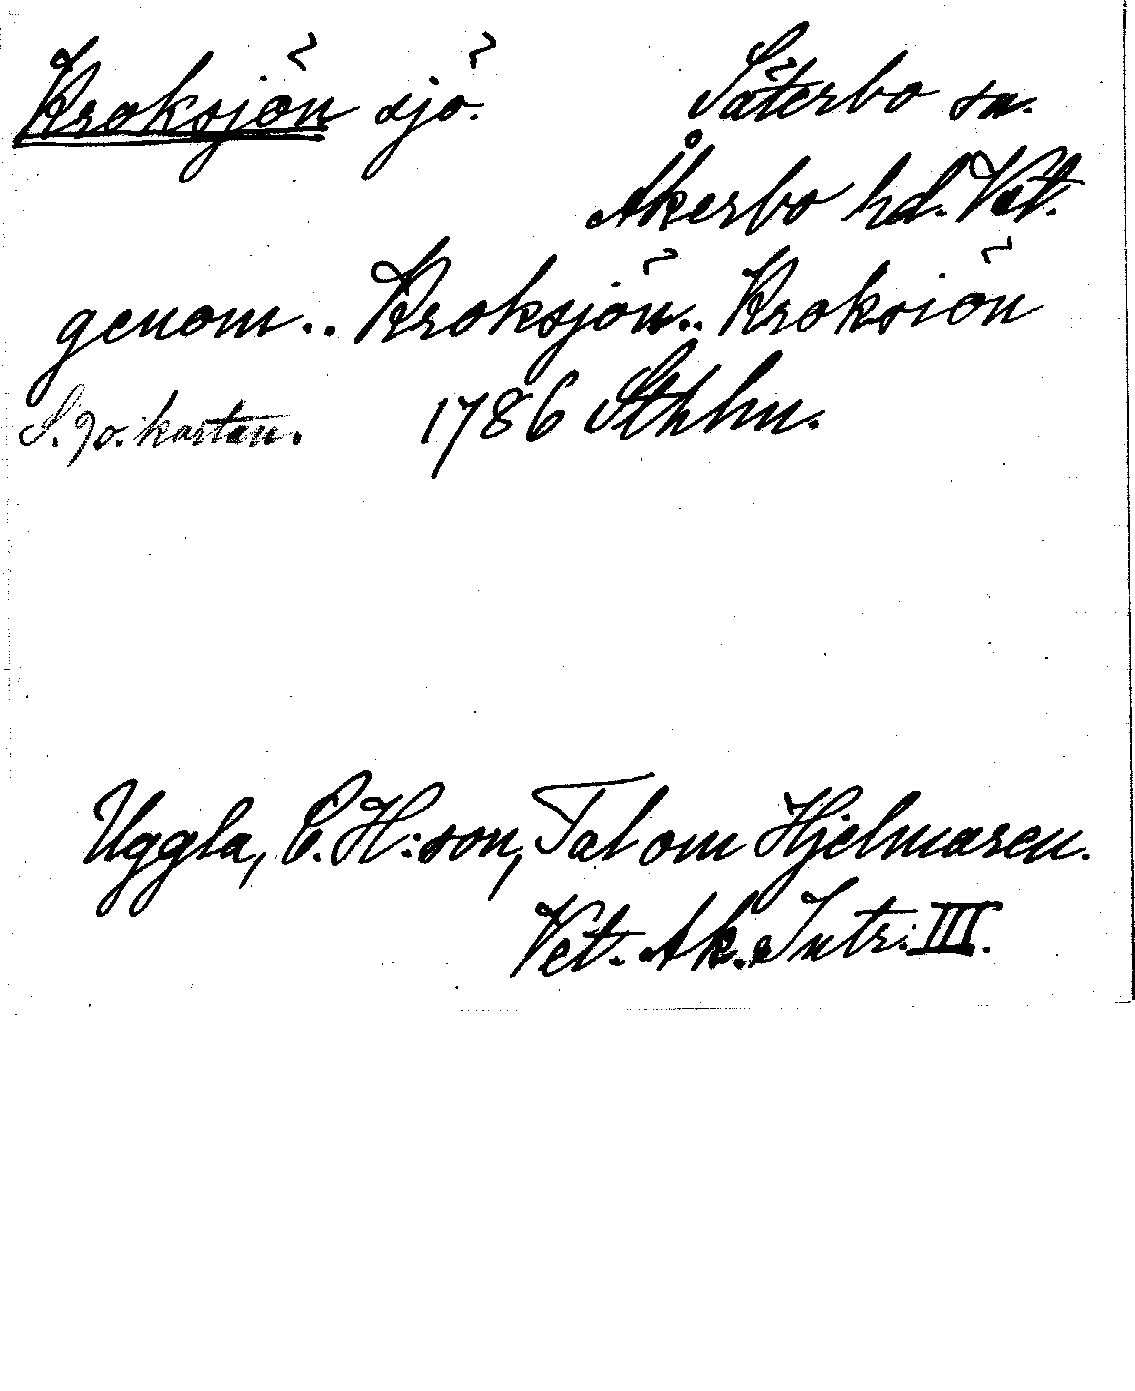 Kroksjön sjö. Säterbo sn.
Åkerbo hd. Vst.
genom.. Kroksjön.. Kroksiön
S. go. kartan. 1786 Sthlm.
Uggla, C. H:son, Tal om Hjelmaren.
Vet. Ak. Intr. III.